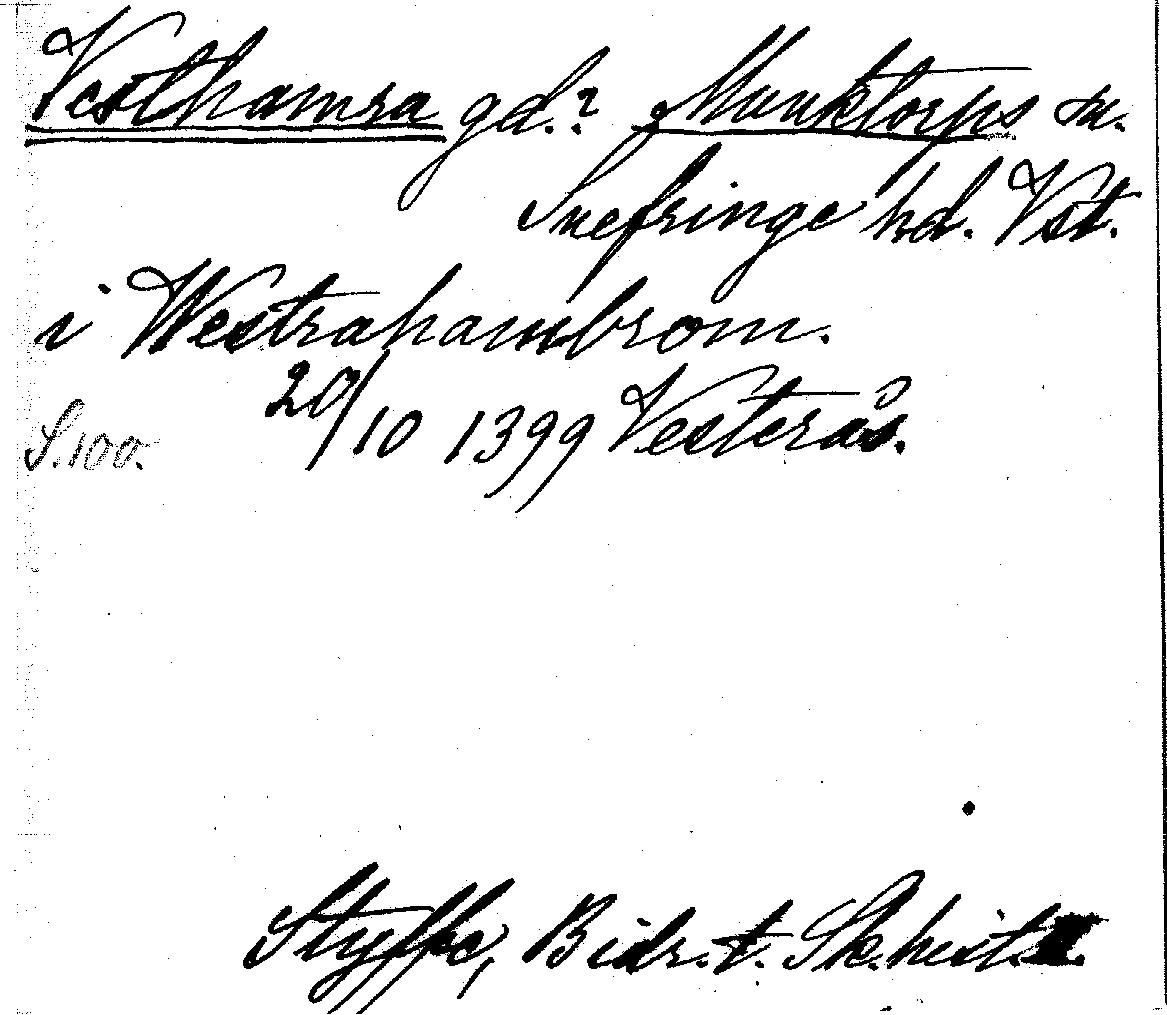 Vesthamra gd.? Munktorps sn.
Snefringe hd. Vstm.
i Westrahambrom.
20/10 1399 Vesterås.
S. 100.
Styffe, Bidr. t. Sk. hist.